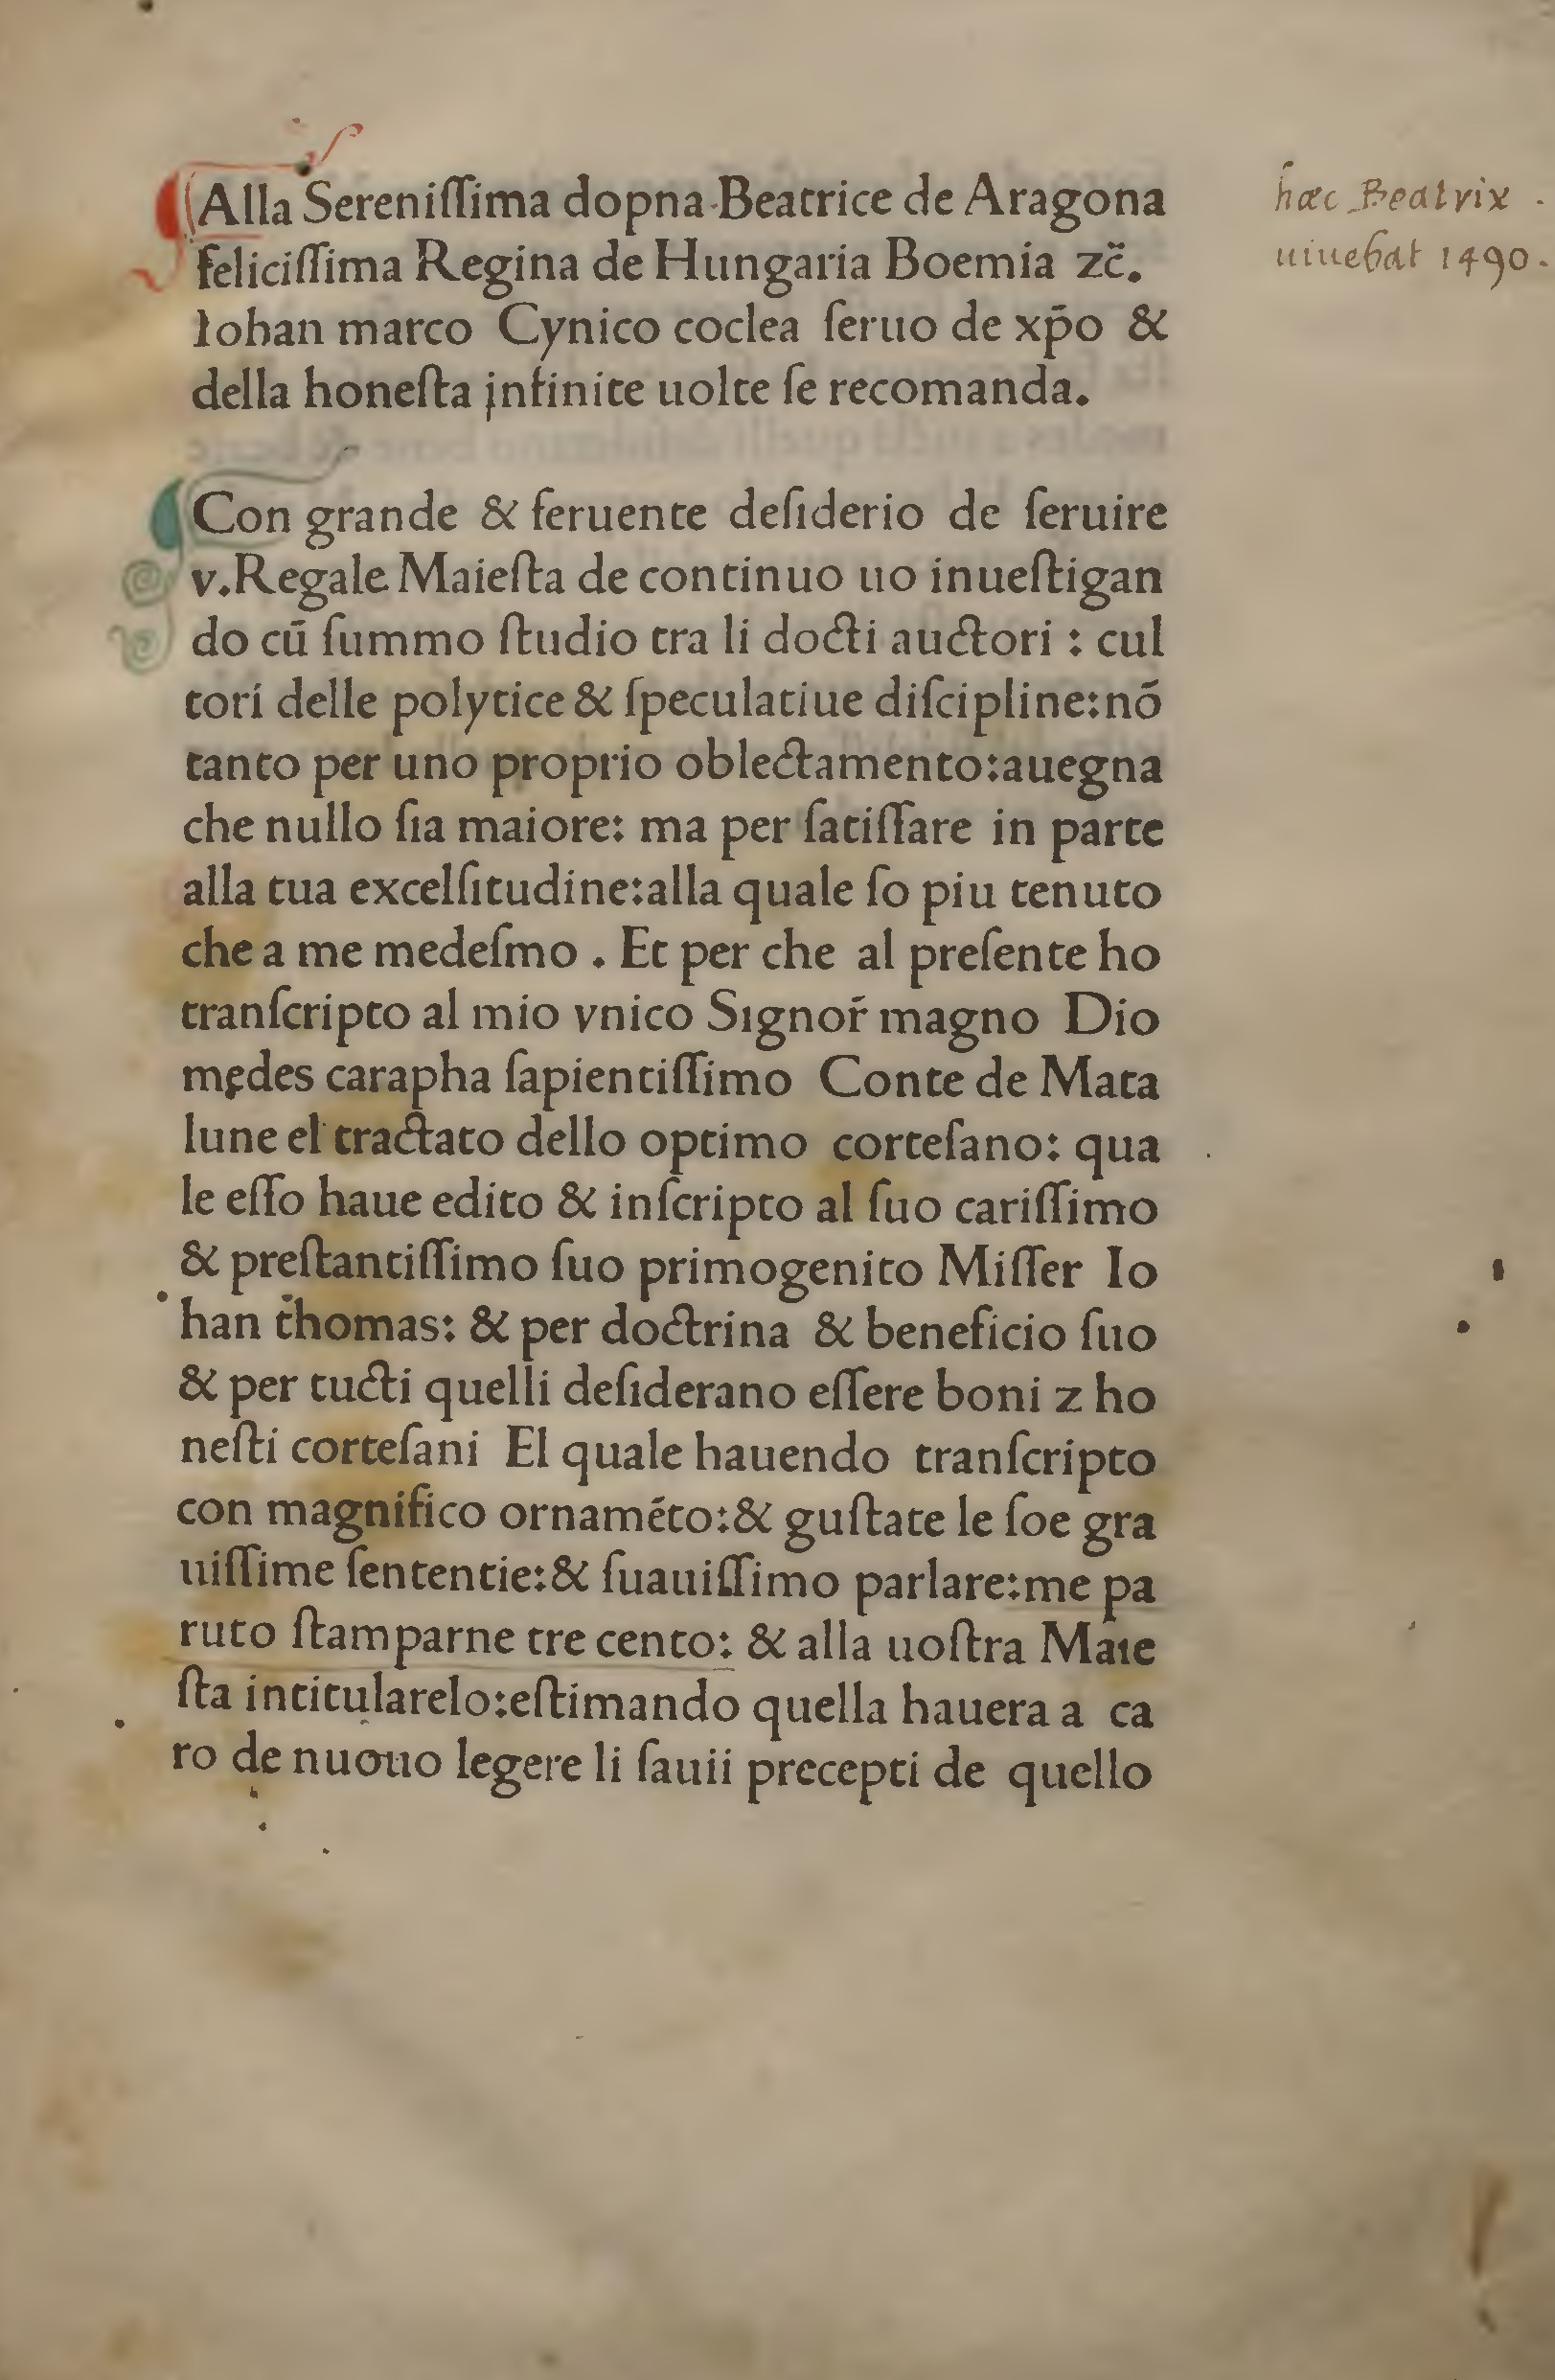 Alla Sereniſſima dopna Beatrice de Aragona
feliciſſima Regina de Hungaria Boemia ⁊c̄.
Iohan marco Cynico coclea ſeruo de xp̄o &
della honeſta infinite uolte ſe recomanda.
Con grande & feruente deſiderio de ſeruire
v.Regale Maieſta de continuo uo inueſtigan
do cū ſummo ſtudio tra li docti auctori : cul
tori delle polytice & ſpeculatiue diſcipline:nō
tanto per uno proprio oblectamento:auegna
che nullo ſia maiore: ma per ſatiſfare in parte
alla tua excelſitudine:alla quale ſo piu tenuto
che a me medeſmo . Et per che al preſente ho
tranſcripto al mio vnico Signor̄ magno Dio
medes carapha ſapientiſſimo Conte de Mata
lune el tractato dello optimo corteſano: qua
le eſſo haue edito & inſcripto al ſuo cariſſimo
& preſtantiſſimo ſuo primogenito Miſſer Io
han thomas: & per doctrina & beneficio ſuo
& per tucti quelli deſiderano eſſere boni ⁊ ho
neſti corteſani El quale hauendo tranſcripto
con magnifico ornamēto:& guſtate le ſoe gra
uiſſime ſententie:& ſuauiſſimo parlare:me pa
ruto ſtamparne tre cento: & alla uoſtra Maie
ſta intitularelo:eſtimando quella hauera a ca
ro de nuouo legere li ſauii precepti de quello
hæc Beatrix .
uiuebat 1490.